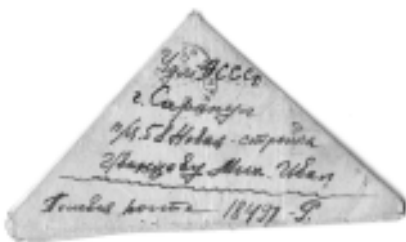 Удм АССР
г. Сарапул
п/я. 58 Новая-стройка
Мих. Иван
Полевая почта 18497-Р.